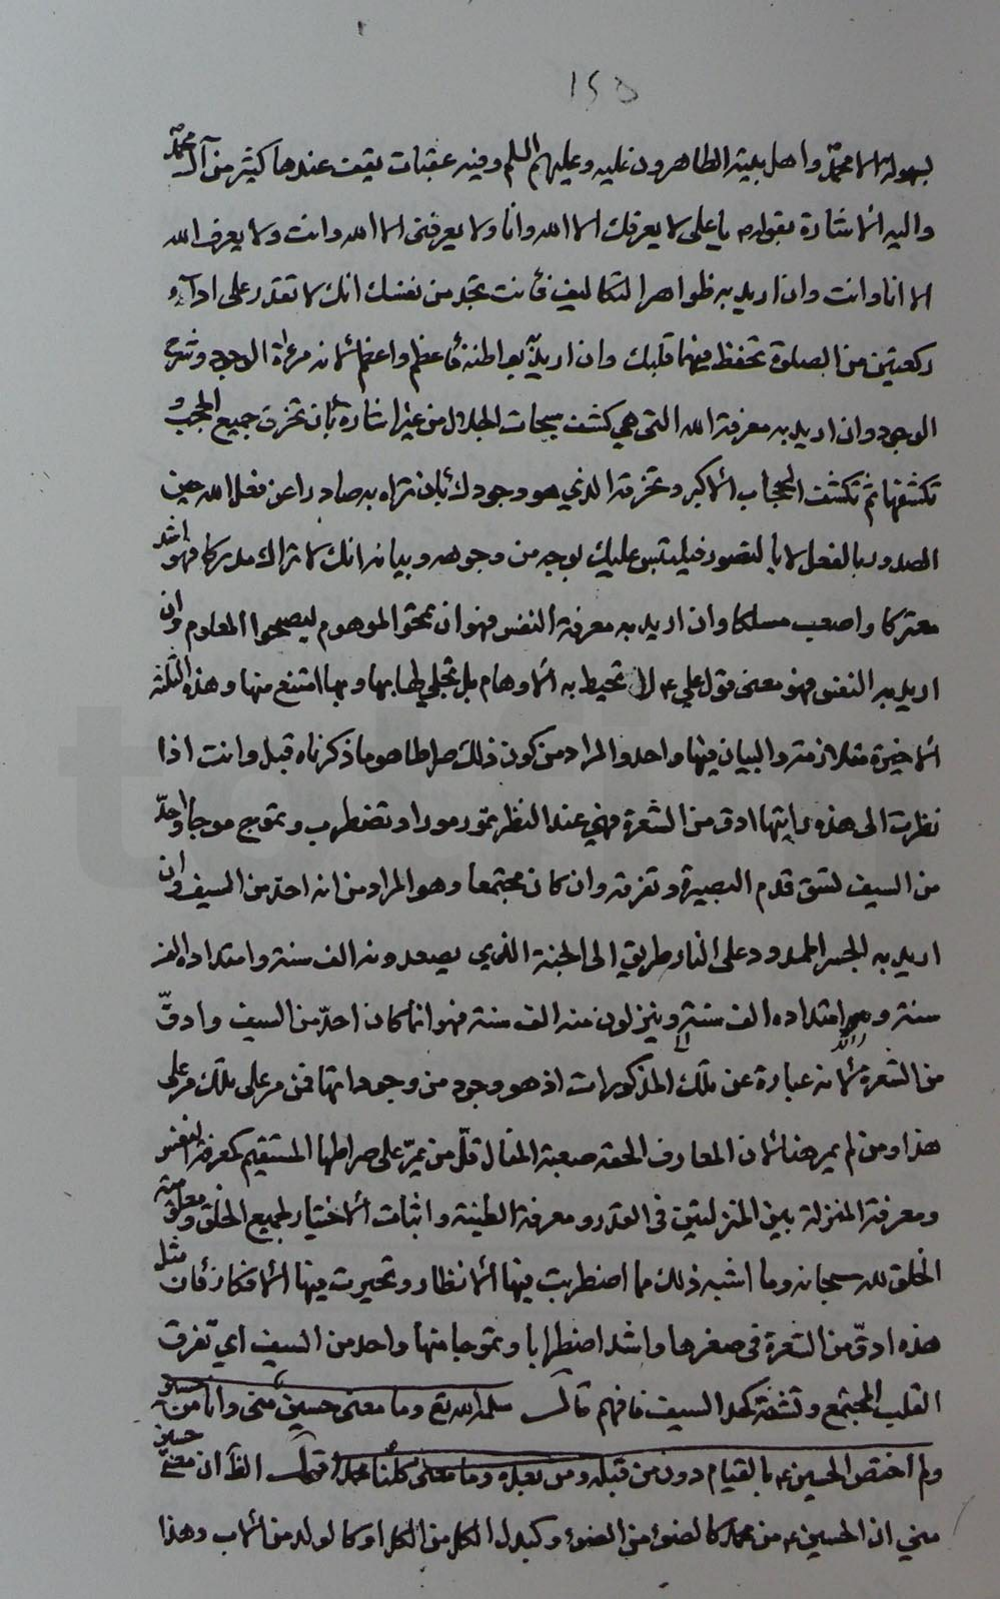 ١٥٥
بسهولة الا محمد واهل بيته الطاهرون عليه وعليهم السلم وفيه عقبات يقف عندها كثير من آل محمد ص
واليه الاشارة بقوله ص يا على لا يعرفك الا الله وانا ولا يعرفنى الا الله وانت ولا يعرف الله
الا انا وانت وان اريد به ظواهر التكاليف فانت تجد من نفسك انك لا تقدر على اداء
ركعتين من الصلوة تحفظ فيهما قلبك وان اريد به بواطنه فاعظم واعظم لانه مرءاة الوجود وشرح
الوجود وان اريد به معرفة الله التى هي كشف سبحات الجلال من غير اشارة بان تخرق جميع الحجب و
تكشفها ثم تكشف الحجاب الاكبر وتخرقه الذي هو وجودك بان تراه به صادرا عن فعل الله حين
الصدور بالفعل لا بالتصور فيلتبس عليك بوجه من وجوهه وبيانه انك لا تراك مدركا فهو اشد
معتركا واصعب مسلكا وان اريد به معرفة النفس فهو ان تمحو الموهوم ليصحوا المعلوم وان
اريد به النفس فهو معنى قول علي ع لا تحيط به الاوهام بل تجلى لها بها وبها امتنع منها وهذه الثلثة
الاخيرة متلازمة والبيان فيها واحد والمراد من كون ذلك صراطا هو ما ذكرناه قبل وانت اذا
نظرت الى هذه رايتها ادق من الشعرة فهي عند النظر تمور مورا وتضطرب وتموج موجا واحدّ
من السيف لتشق قدم البصيرة وتفرقه وان كان مجتمعا وهو المراد من انه احدّ من السيف وان
اريد به الجسر الممدود على النار طريق الى الجنة الذي يصعدونه الف سنة وامتداده الف
سنة وامتداده الف سنة وينزلون منه الف سنة فهو انما كان احدّ من السيف وادقّ
من الشعرة لانه عبارة عن تلك المذكورات اذ هو وجود من وجوداتها فمن مر على تلك مر على
هذا ومن لم يمر هنا لان المعارف الحقه صعبة المنال قلّ من يمرّ على صراطها المستقيم كمعرفة النفس
ومعرفة المنزلة بين المنزلتين فى القدر ومعرفة الطينة واثبات الاختيار لجميع الخلق ومعلومية
الخلق لله سبحانه وما اشبه ذلك مما اضطربت فيها الانظار وتحيرت فيها الافكار فان مثل
هذه ادقّ من الشعرة فى صغرها واشد اضطرابا وتموجا منها واحد من السيف اي تفرق
القلب المجتمع وتشقه كحد السيف فافهم قال سلمه الله تع وما معنى حسين منى وانا من حسين
ولم اختص الحسين ع بالقيام دون من قبله ومن بعده وما معنى كلنا محمد اقول الظ ان معنى حسين
منى ان الحسين ع من محمد ص كالضوء من الضوء وكبدل الكل من الكل او كالولد من الاب وهذا